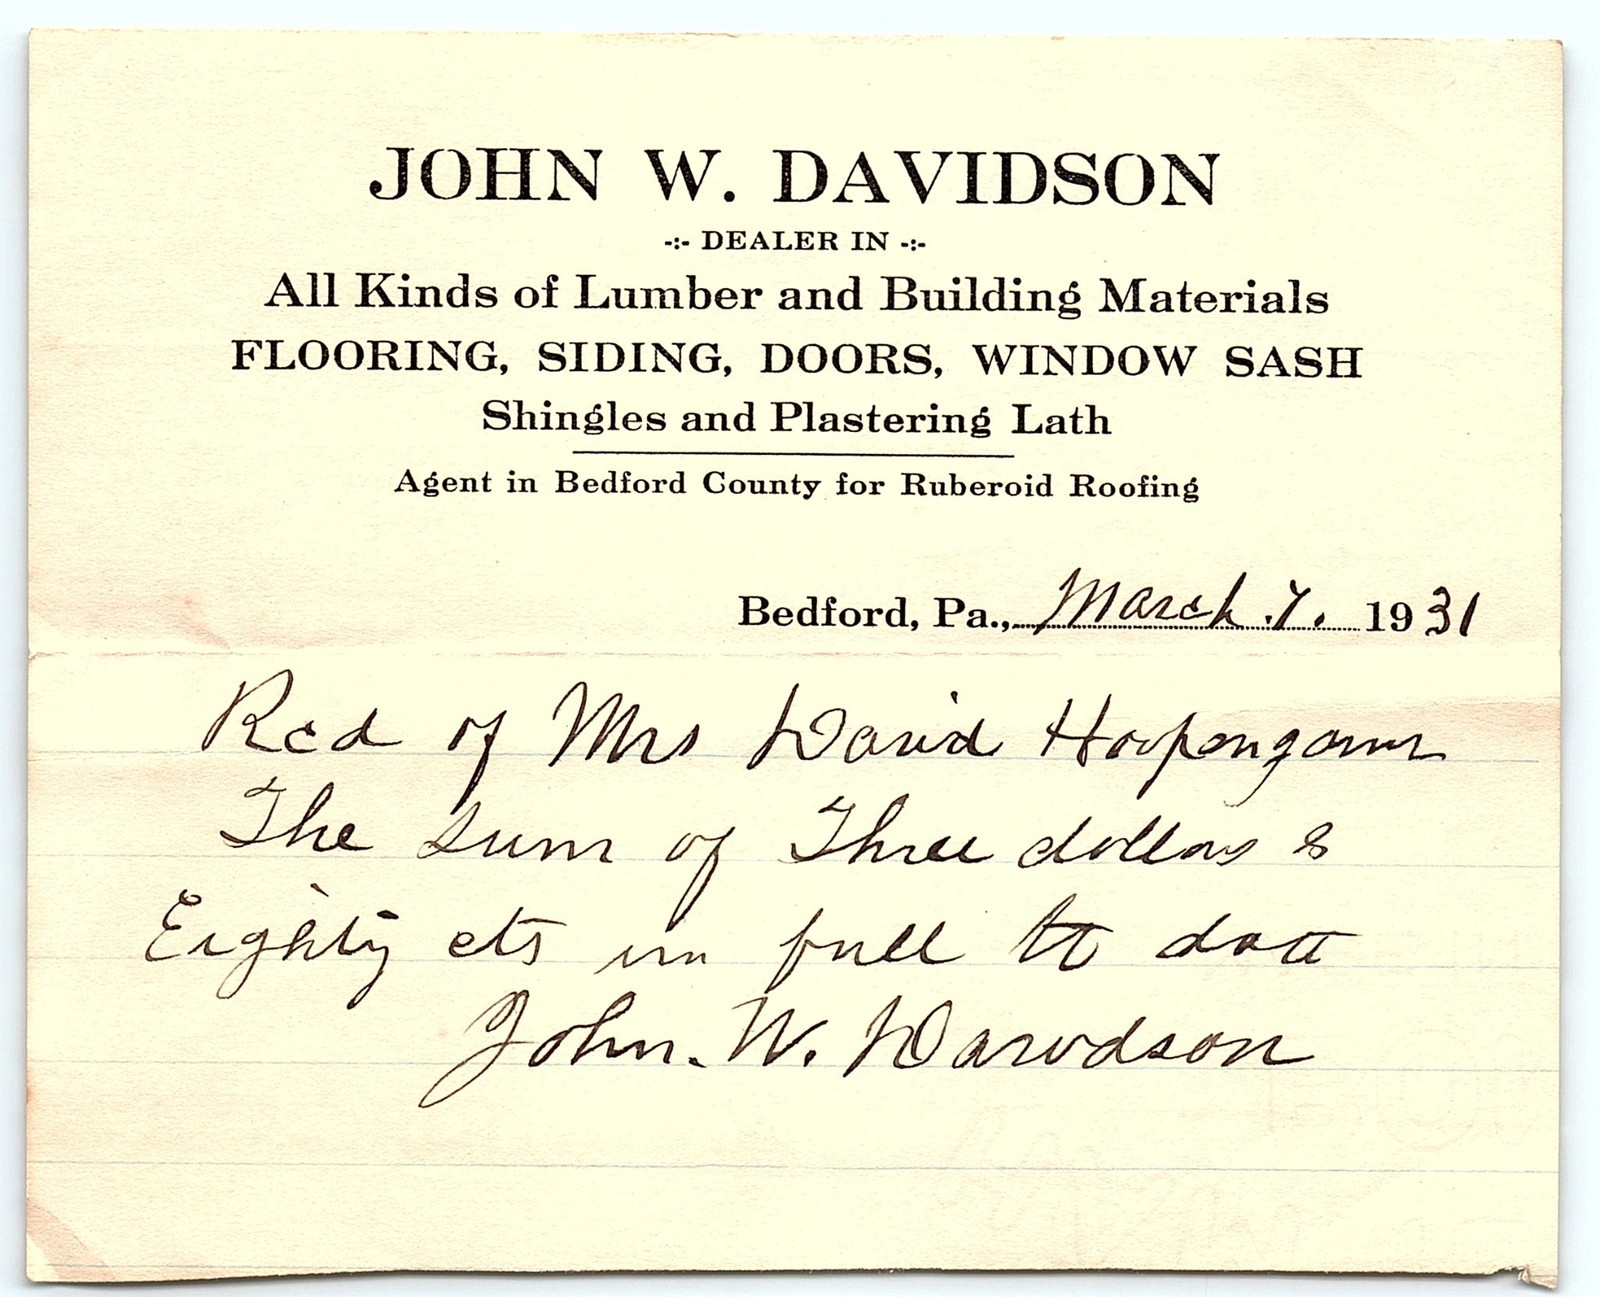 JOHN W. DAVIDSON
-:- DEALER IN -:-
All Kinds of Lumber and Building Materials
FLOORING, SIDING, DOORS, WINDOW SASH
Shingles and Plastering Lath
Agent in Bedford County for Ruberoid Roofing
Bedford, Pa., March 7. 1931
Rcd of Mrs David
The sum of Three dollars &
Eighty cts in full to date
John. W. Davidson